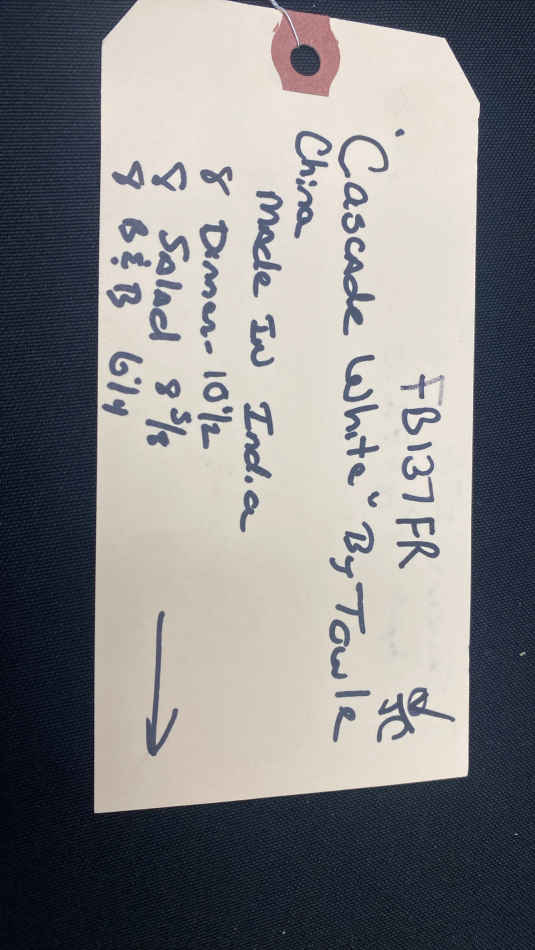 FB137FR
JC
"Cascade White" By Towle
China
Made In India
8 Dinner - 10 1/2
8 Salad 8 5/8
8 B & B 6 1/4